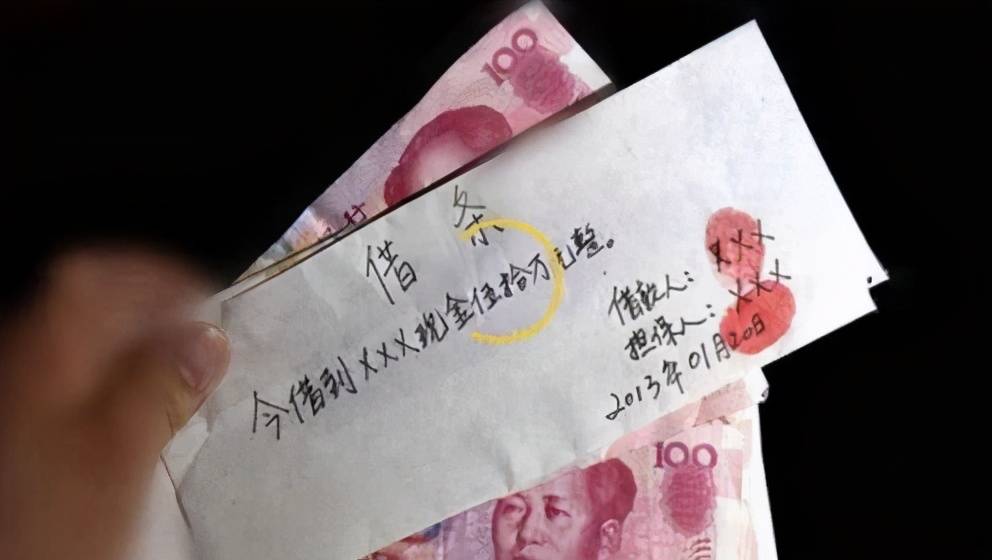 100
行
借 条
今借到XXX现金伍拾万元整。
借款人：XXX
担保人：XXX
2013年01月20日
100